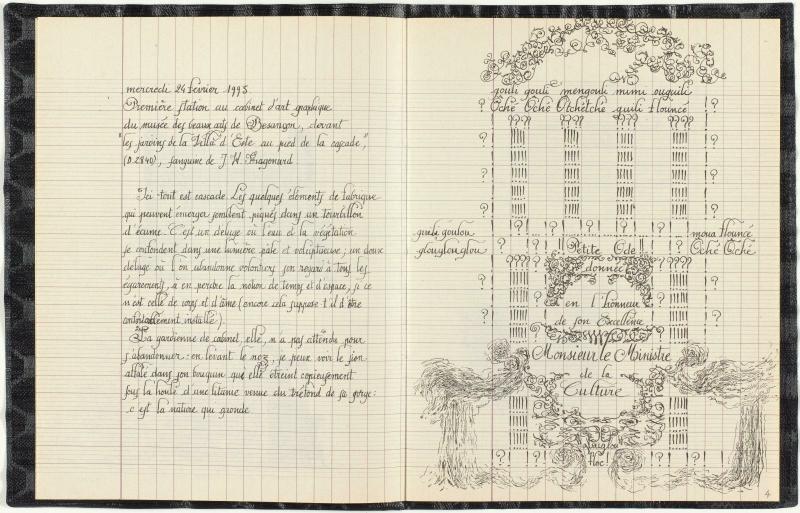 mercredi 24 février 1995
Première station au cabinet d'art graphique
du musée des beaux arts de Besançon, devant
"les jardins de la Villa d'Este au pied de la cascade",
(D.2840), sanguine de J. H. Fragonard.
Ici tout est cascade. Les quelques éléments de fabrique
qui peuvent émerger semblent piqués dans un tourbillon
d'écume. C'est un déluge où l'eau et la végétation
se confondent dans une lumière pâle et voluptueuse ; un doux
déluge où l'on abandonne volontiers son regard à tous les
égarements, à en perdre la notion de temps et d'espace, si ce
n'est celle de corps et d'âme (encore cela suppose t'il d'être
confortablement installé).
La gardienne de cabinet, elle, n'a pas attendu pour
s'abandonner : en levant le nez, je peux voir le sien
affalé dans son bouquin que elle étreint copieusement
sous la houle d'une litanie venue du tréfond de sa gorge :
c'est la nature qui gronde
gouli gouli mengouli mimi ouguili
? Oché Oché Otchétché guili Flouncé !?
???? ???? ???? ????
gueli goulou
glouglouglou
moua Flouncé
Oché Oché
Petite Ode
donnée
en l'honneur
de son Excellence
Monsieur le Ministre
de la
Culture
floc !
4